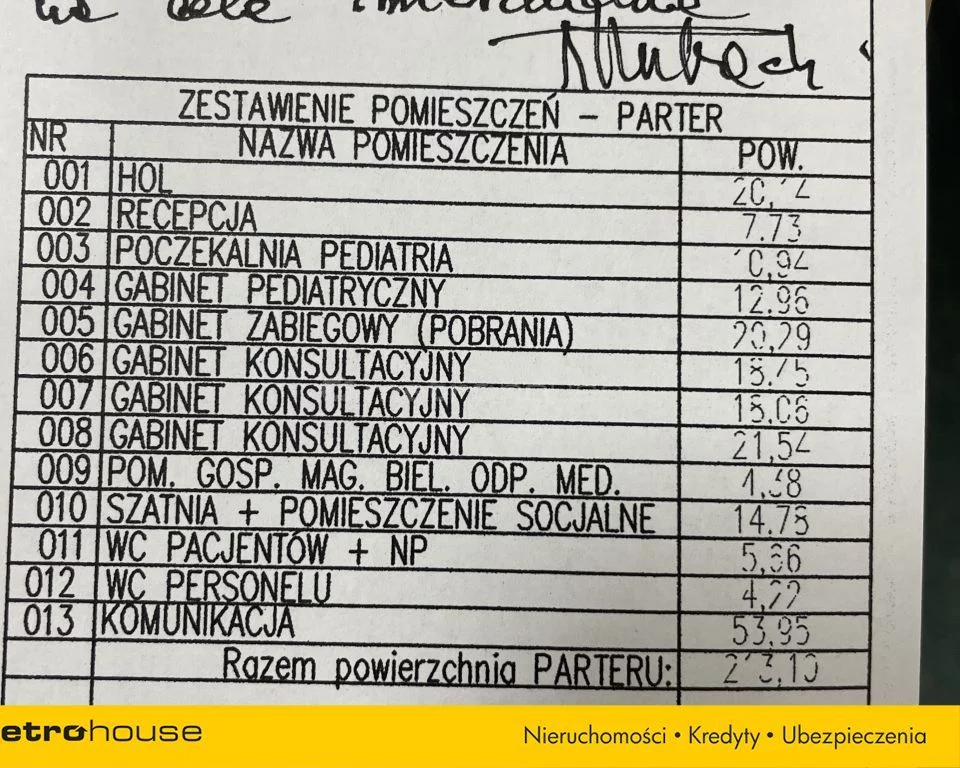 ZESTAWIENIE POMIESZCZEŃ – PARTER
NR NAZWA POMIESZCZENIA POW.
001 HOL
002 RECEPCJA 7.73
003 POCZEKALNIA PEDIATRIA
004 GABINET PEDIATRYCZNY 12.96
005 GABINET ZABIEGOWY (POBRANIA) 20,29
006 GABINET KONSULTACYJNY
007 GABINET KONSULTACYJNY
008 GABINET KONSULTACYJNY 21,54
009 POM. GOSP. MAG. BIEL. ODP. MED.
010 SZATNIA + POMIESZCZENIE SOCJALNE
011 WC PACJENTÓW + NP
012 WC PERSONELU 4,22
013 KOMUNIKACJA 53,95
Razem powierzchnia PARTERU:
etrohouse Nieruchomości • Kredyty • Ubezpieczenia